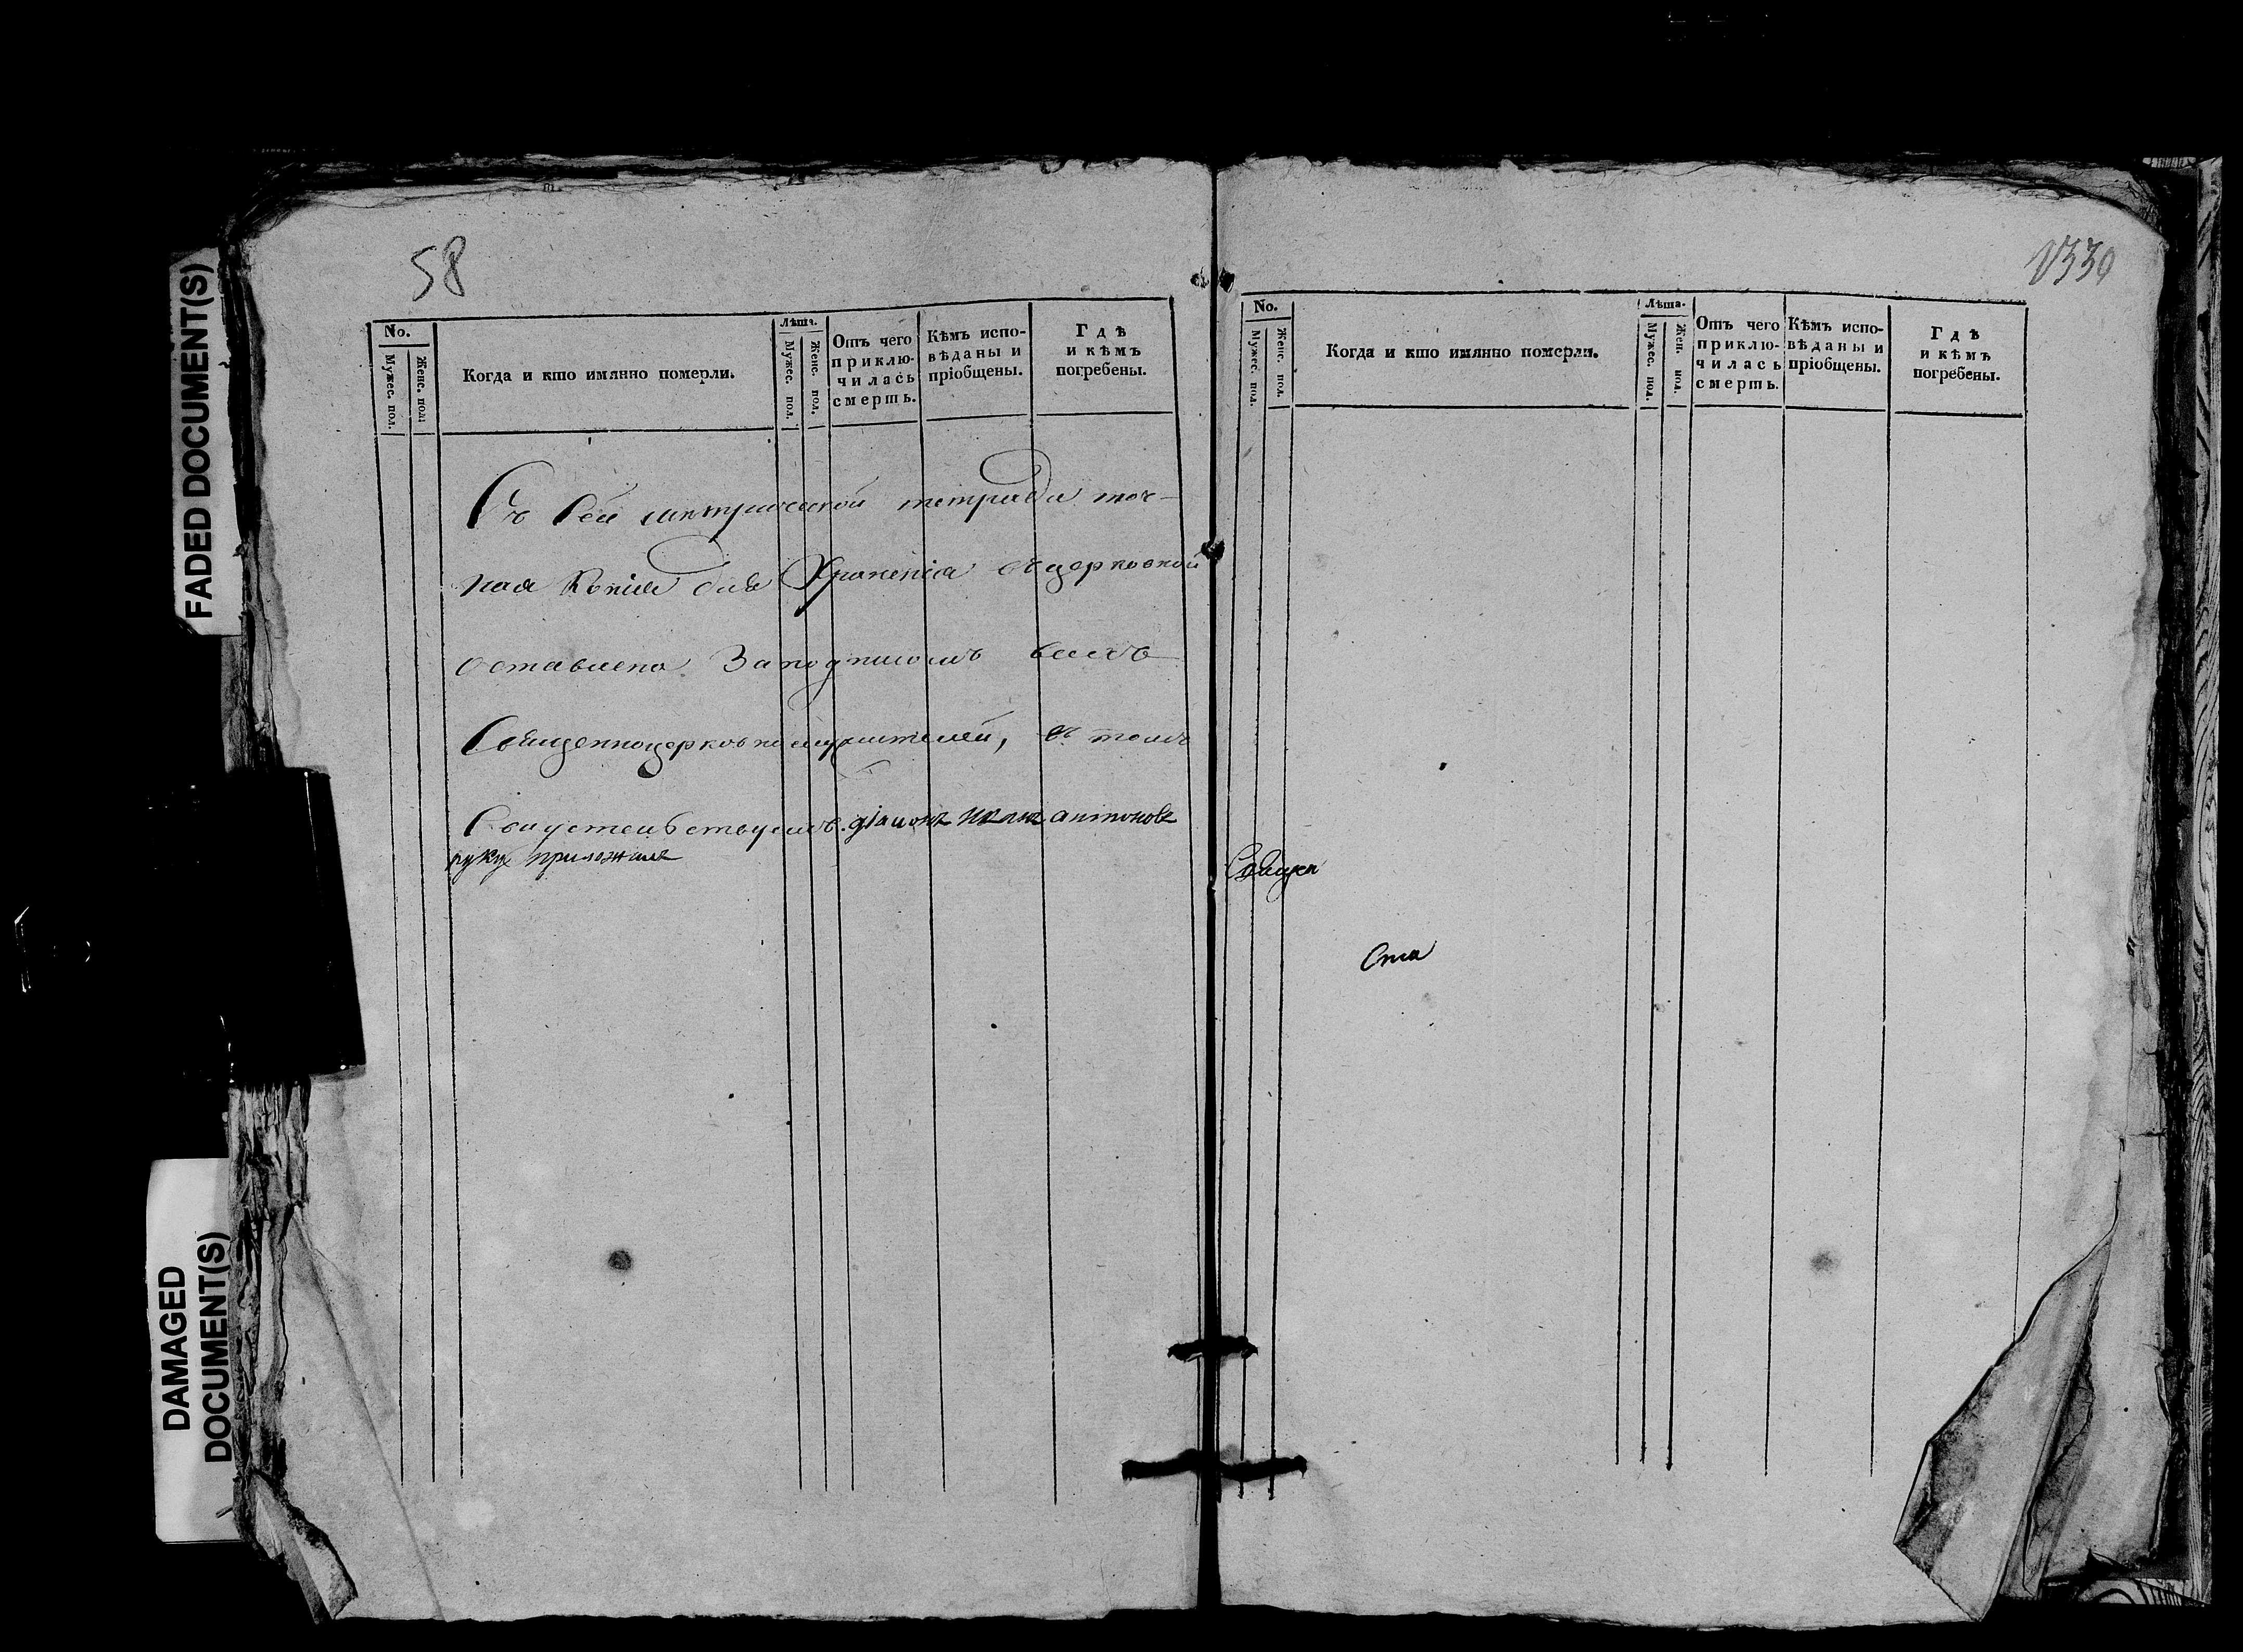 FADED DOCUMENT(S)
DAMAGED
DOCUMENT(S)
58
No.
Мужес. пол.
Женс. пол.
Когда и кто имянно померли.
Лѣта.
Мужес. пол.
Женс. пол.
Отъ чего
приклю-
чилась
смерть.
Кѣмъ испо-
вѣданы и
пріобщены.
Гдѣ
и кѣмъ
погребены.
Съ сей метрической тетради точ-
ная копія для Храненія въ церковной
оставлена За подписомъ всехъ
Священноцерковнослужителей, въ томъ
Свидетельствуемъ. діаконъ Иванъ антоновъ
руку приложилъ
339
No.
Мужес. пол.
Женс. пол.
Когда и кто имянно померли.
Лѣта.
Мужес. пол.
Жен. пол.
Отъ чего
приклю-
чилась
смерть.
Кѣмъ испо-
вѣданы и
пріобщены.
Гдѣ
и кѣмъ
погребены.
Священ
Ста